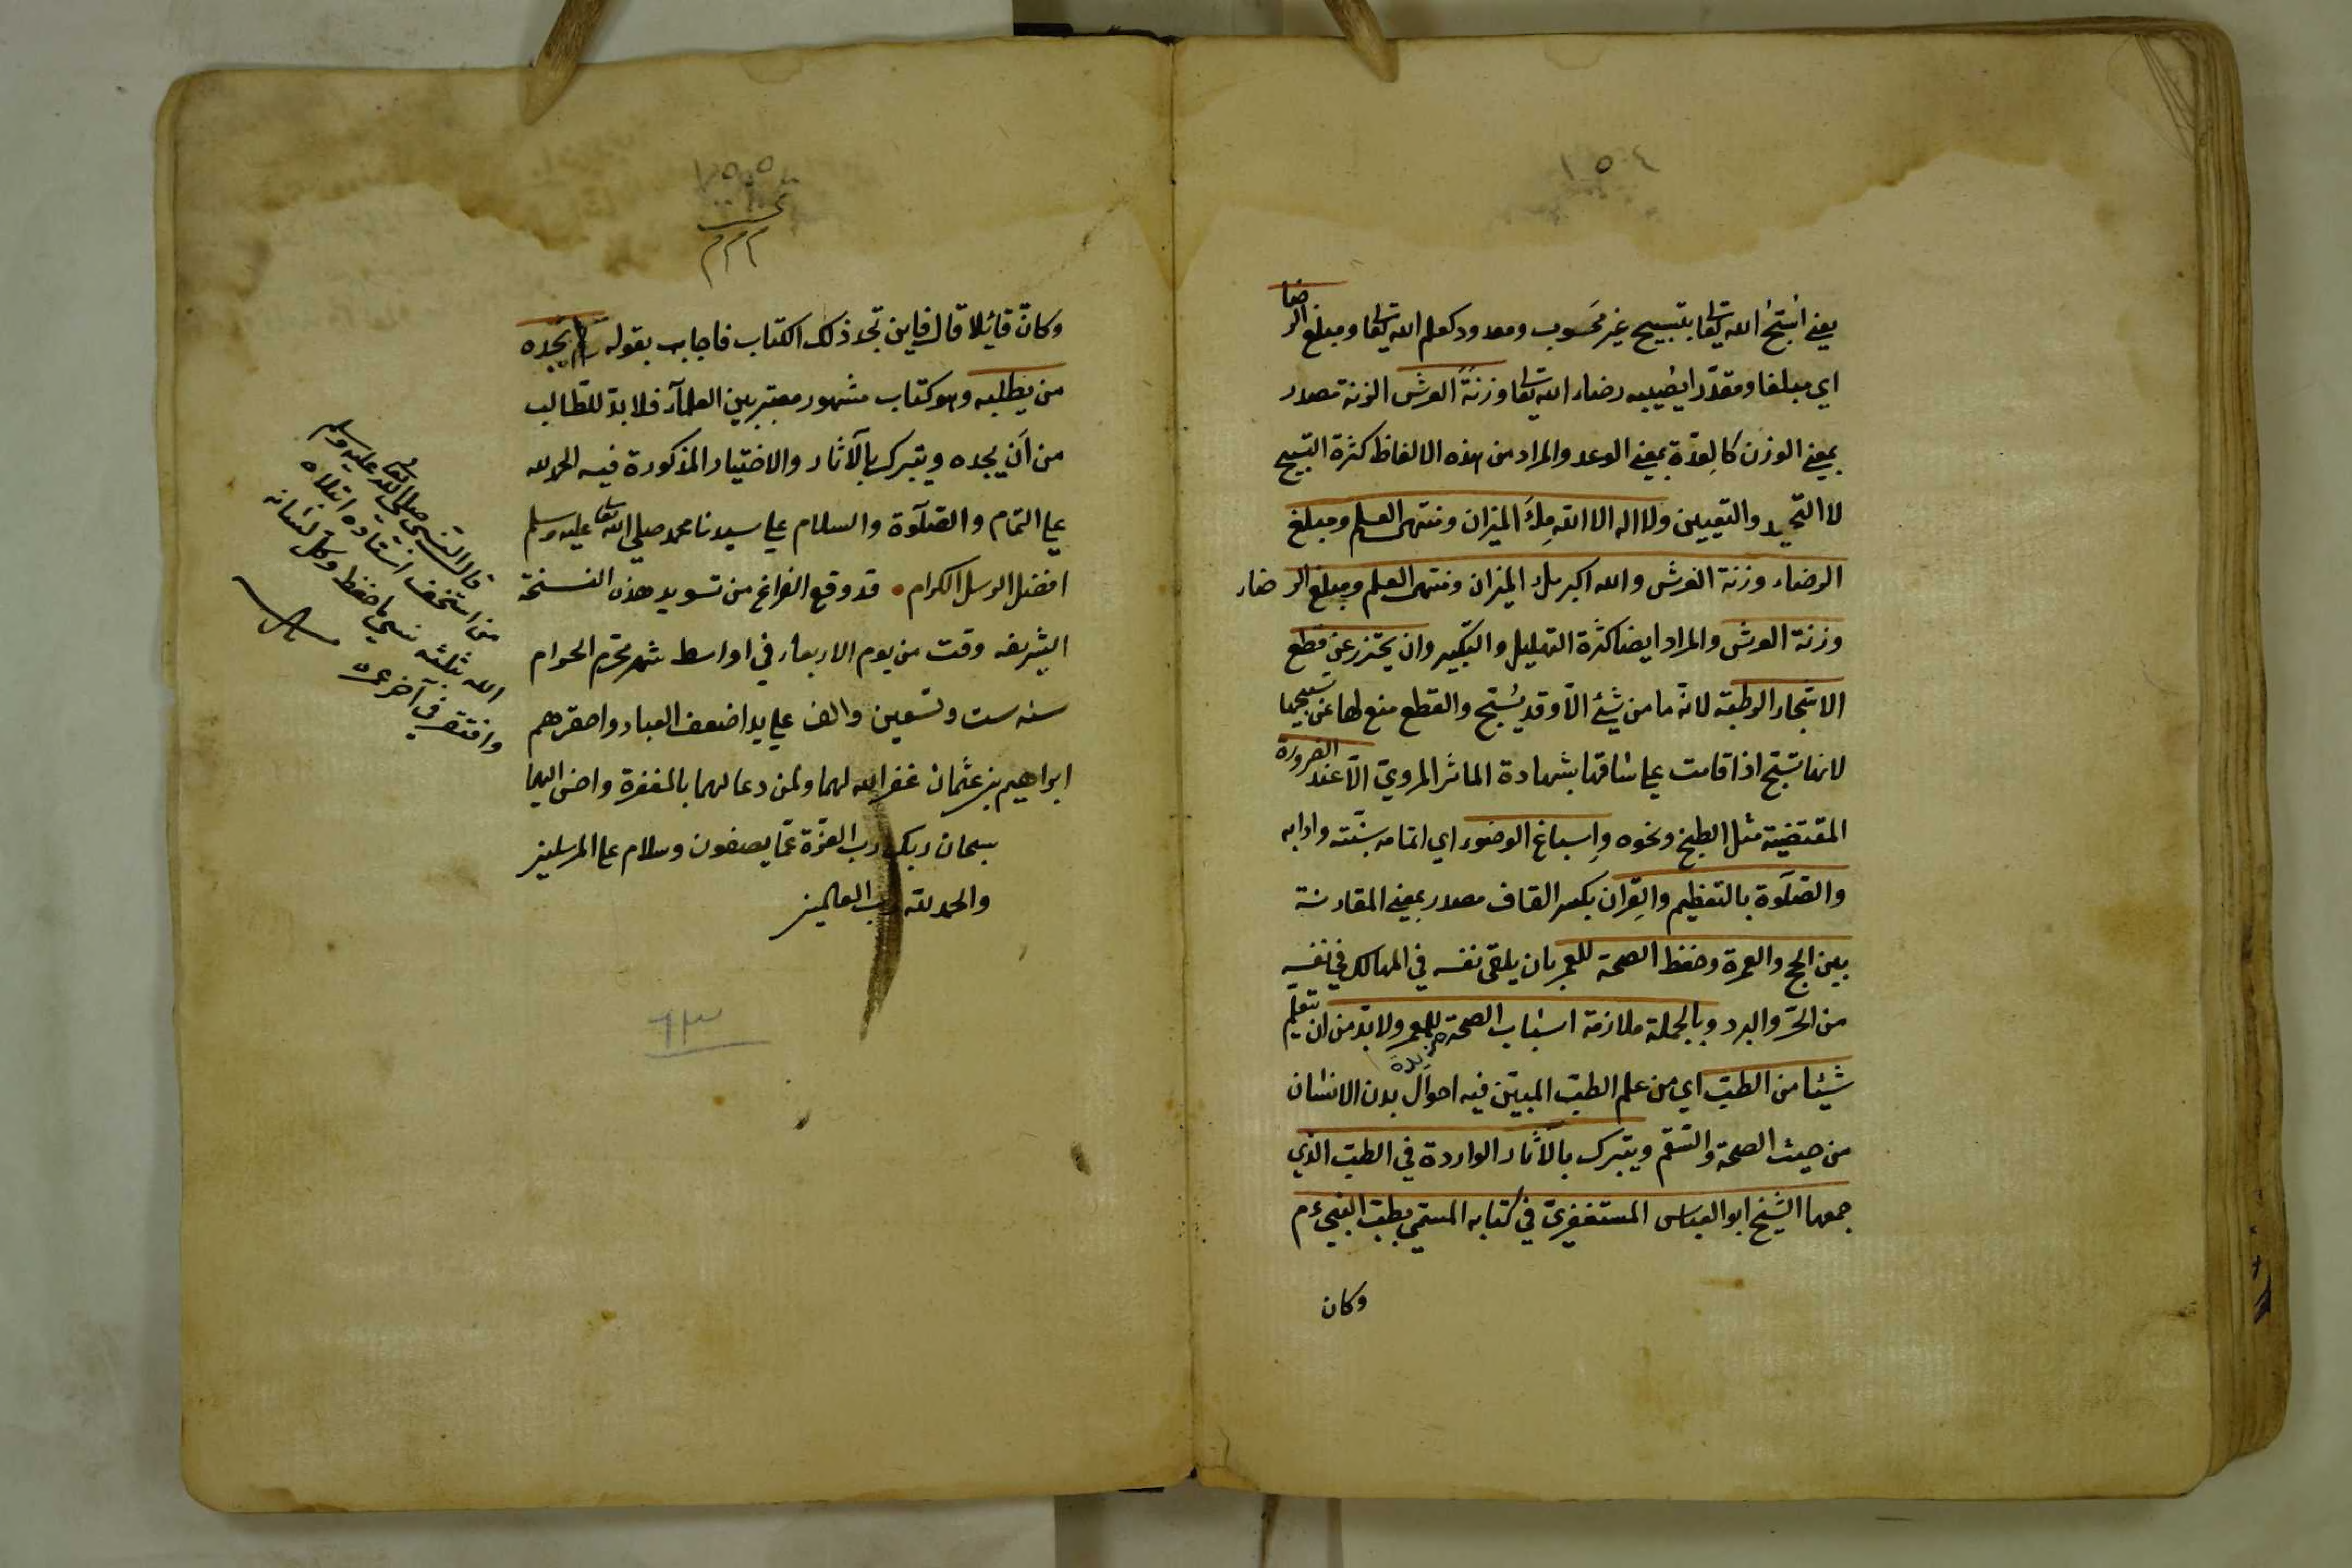 ١٥٤
يعني اسبّح الله تعا بتسبيح غير محسوب ومعدود كعلم الله تعا ومبلغ الرضا
اي مبلغا ومقدّرا يصيبه رضاء الله تعا وزنةً العرش الزنة مصدر
بمعني الوزن كالعِدَة بمعني الوعد والمراد من هذه الالفاظ كثرة التسبيح
لا التحديد والتعيين ولا اله الا الله مِلءَ الميزان ومنتهى العلم ومبلغ
الرضاء وزنة العرش والله اكبر ملء الميزان ومنتهى العلم ومبلغ الرضاء
وزنة العرش والمراد ايضا كثرة التهليل والتكبير وان يحترز عن قطع
الاشجار الرطبة لانّه ما من شئ الّا وقد يُسَبّح والقطع منع لها عن تسبيحها
لانها تسبّح اذا قامت علي ساقها بشهادة المآثر المرويّ الّا عند الضرورة
المقتضية مثل الطبخ ونحوه وإسباغ الوضوء اي اتمامه بسنّته وادابه
والصّلوة بالتعظيم والقِران بكسر القاف مصدر بمعني المقارنة
بين الحج والعمرة وحفظ الصحة للعمر بان يلقى نفسه في المهالك في نفسه
من الحرّ والبرد وبالجملة ملازمة اسباب الصحة للعمر ولا بدّ من ان يتعلم
شيئا من الطبّ اي من علم الطبّ المبيّن فيه احوال بدن الانسان
من حيث الصحة والسّقم ويتبرك بالآثار الواردة في الطبّ الذي
جمعها الشيخ ابو العباس المستغفريّ في كتابه المسمّي بطبّ النبيّ ءم
وكان
١٥٥
وكانّ قائلا قال فاين تجد ذلك الكتاب فاجاب بقوله يجده
من يطلبه وهو كتاب مشهور معتبر بين العلمآء فلا بدّ للطّالب
من اَن يجده ويتبرك بالآثار والاختيار المذكورة فيه الحمد لله
علي التمام والصّلوة والسلام علي سيدنا محمد صلي الله تعا عليه وسلم
افضل الرسل الكرام قد وقع الفراغ من تسويد هذه النسخة
الشريفه وقت من يوم الاربعاء في اواسط شهر محرم الحرام
سنه ست وتسعين والف علي يد اضعف العباد واحقرهم
ابراهيم بن عثمان غفر الله لهما ولمن دعا لهما بالمغفرة واحسن اليهما
سبحان ربك رب العزّة عمّا يصفون وسلام علي المرسلين
والحمد لله رب العالمين
قال النبي صلي الله تعا عليه وسلم
من استخف استاده ابتلاه
الله بثلثه نسي ما حفظ وكل لسانه
وافتقر في آخر عمره
٩٣